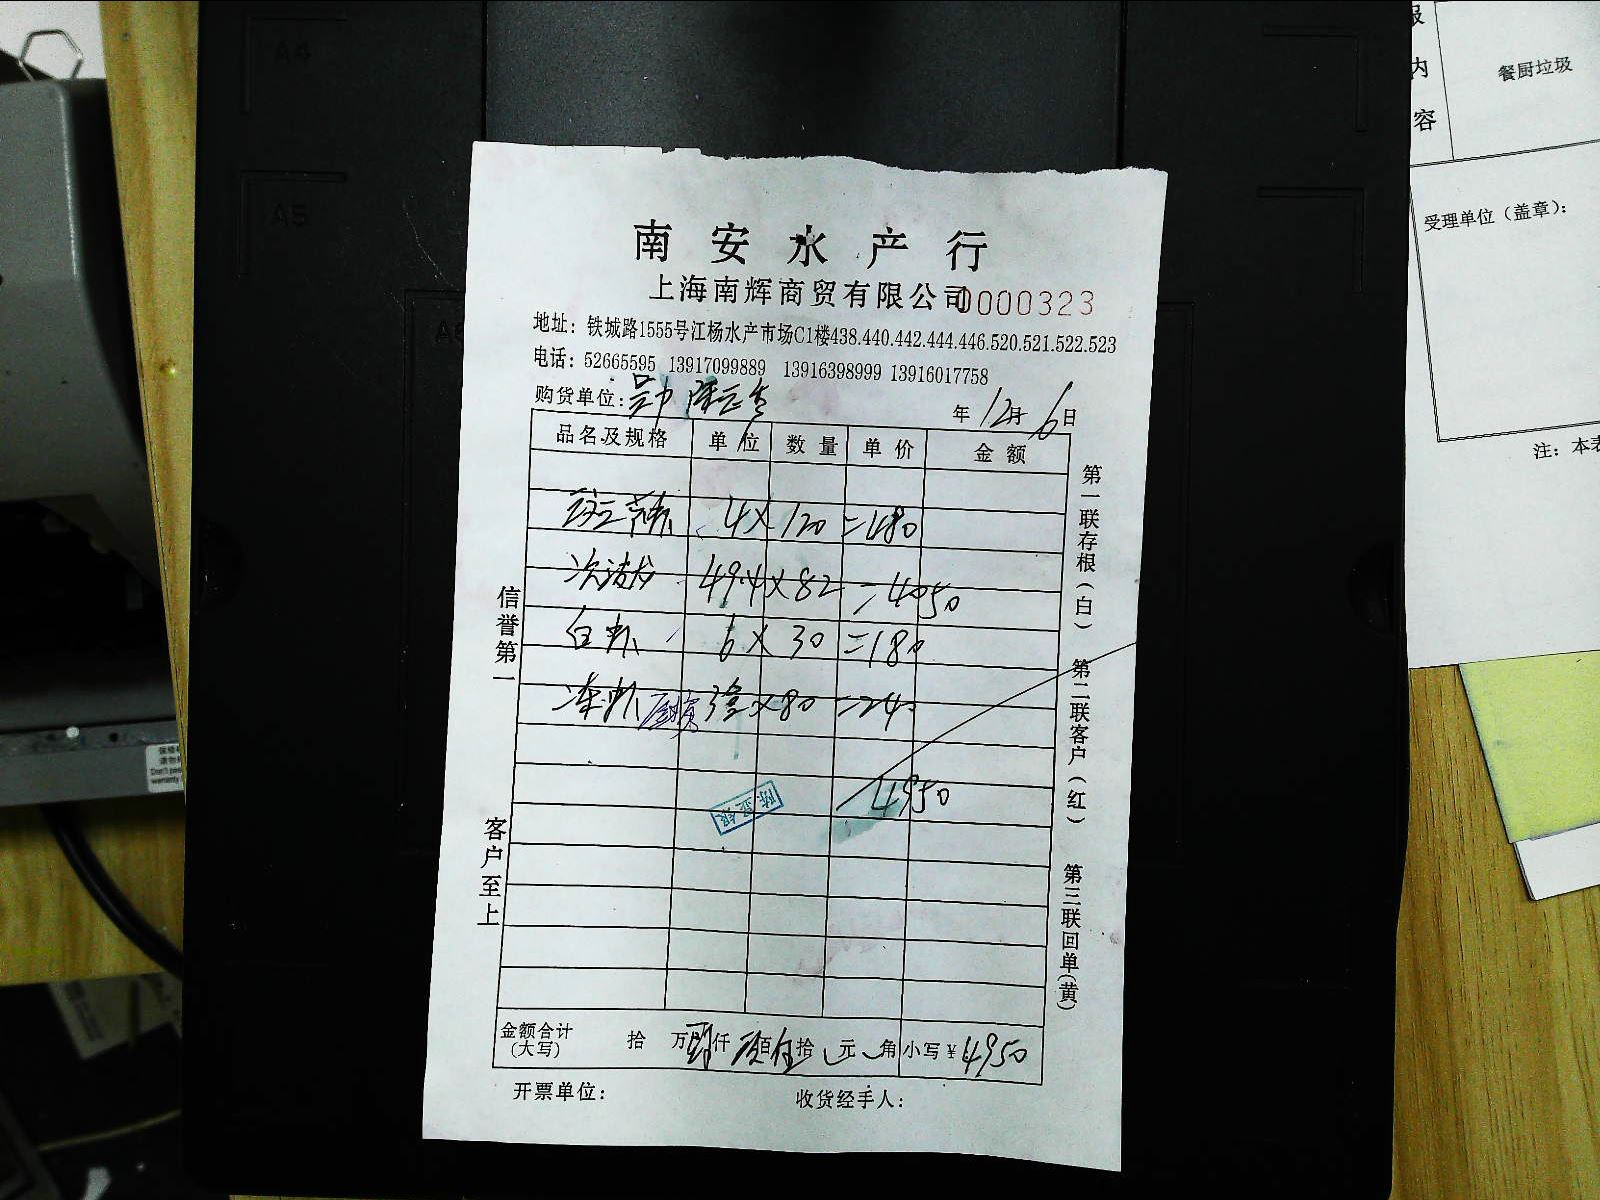 南安水产行
上海南辉商贸有限公司 0000323
地址：铁城路1555号江杨水产市场C1楼438.440.442.444.446.520.521.522.523
电话：52665595 13917099889 13916398999 13916017758
购货单位： 年 12月 6日
品名及规格 单位 数量 单价 金额
4 X 120 = 480
49.4 X 82 = 4050
白 6 X 30 = 180
冻 3盒 X 80 = 240
4950
金额合计(大写) 拾 万 肆仟 玖百 伍拾 元 角 小写￥4950
开票单位： 收货经手人：
信誉第一
客户至上
第一联存根(白)
第二联客户(红)
第三联回单(黄)
A4
A5
内
容
餐厨垃圾
受理单位（盖章）：
注：本表